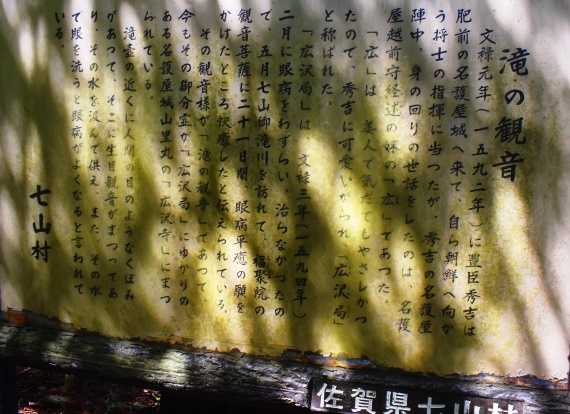 滝の観音
文禄元年(一五九二年)に豊臣秀吉は
肥前の名護屋城へ来て、自ら朝鮮へ向か
う将士の指揮に当つたが、秀吉の名護屋
陣中、身の回りの世話をしたのは、名護
屋越前守経述の妹の「広」であつた。
「広」は、美人で気だてもやさしかつ
たので、秀吉に可愛いがられ、「広沢局」
と称ばれた。
「広沢局」は、文禄三年(一五九四年)
二月に眼病をわずらい、治らなかつたの
で、五月七山御滝川を訪れて、福聚院の
観音菩薩に二十一日間、眼病平癒の願を
かけたところ快癒したと伝えられている。
その観音様が「滝の観音」であつて
今もその御分霊が「広沢局」にゆかりの
ある名護屋城山里丸の「広沢寺」にまつ
られている。
滝壺の近くに人間の目のようなくぼみ
があつて、そこに生目観音がまつつてあ
り、その水を汲んで供え、また、その水
で眼を洗うと眼病がよくなると言われて
いる。
七山村
佐賀県七山村